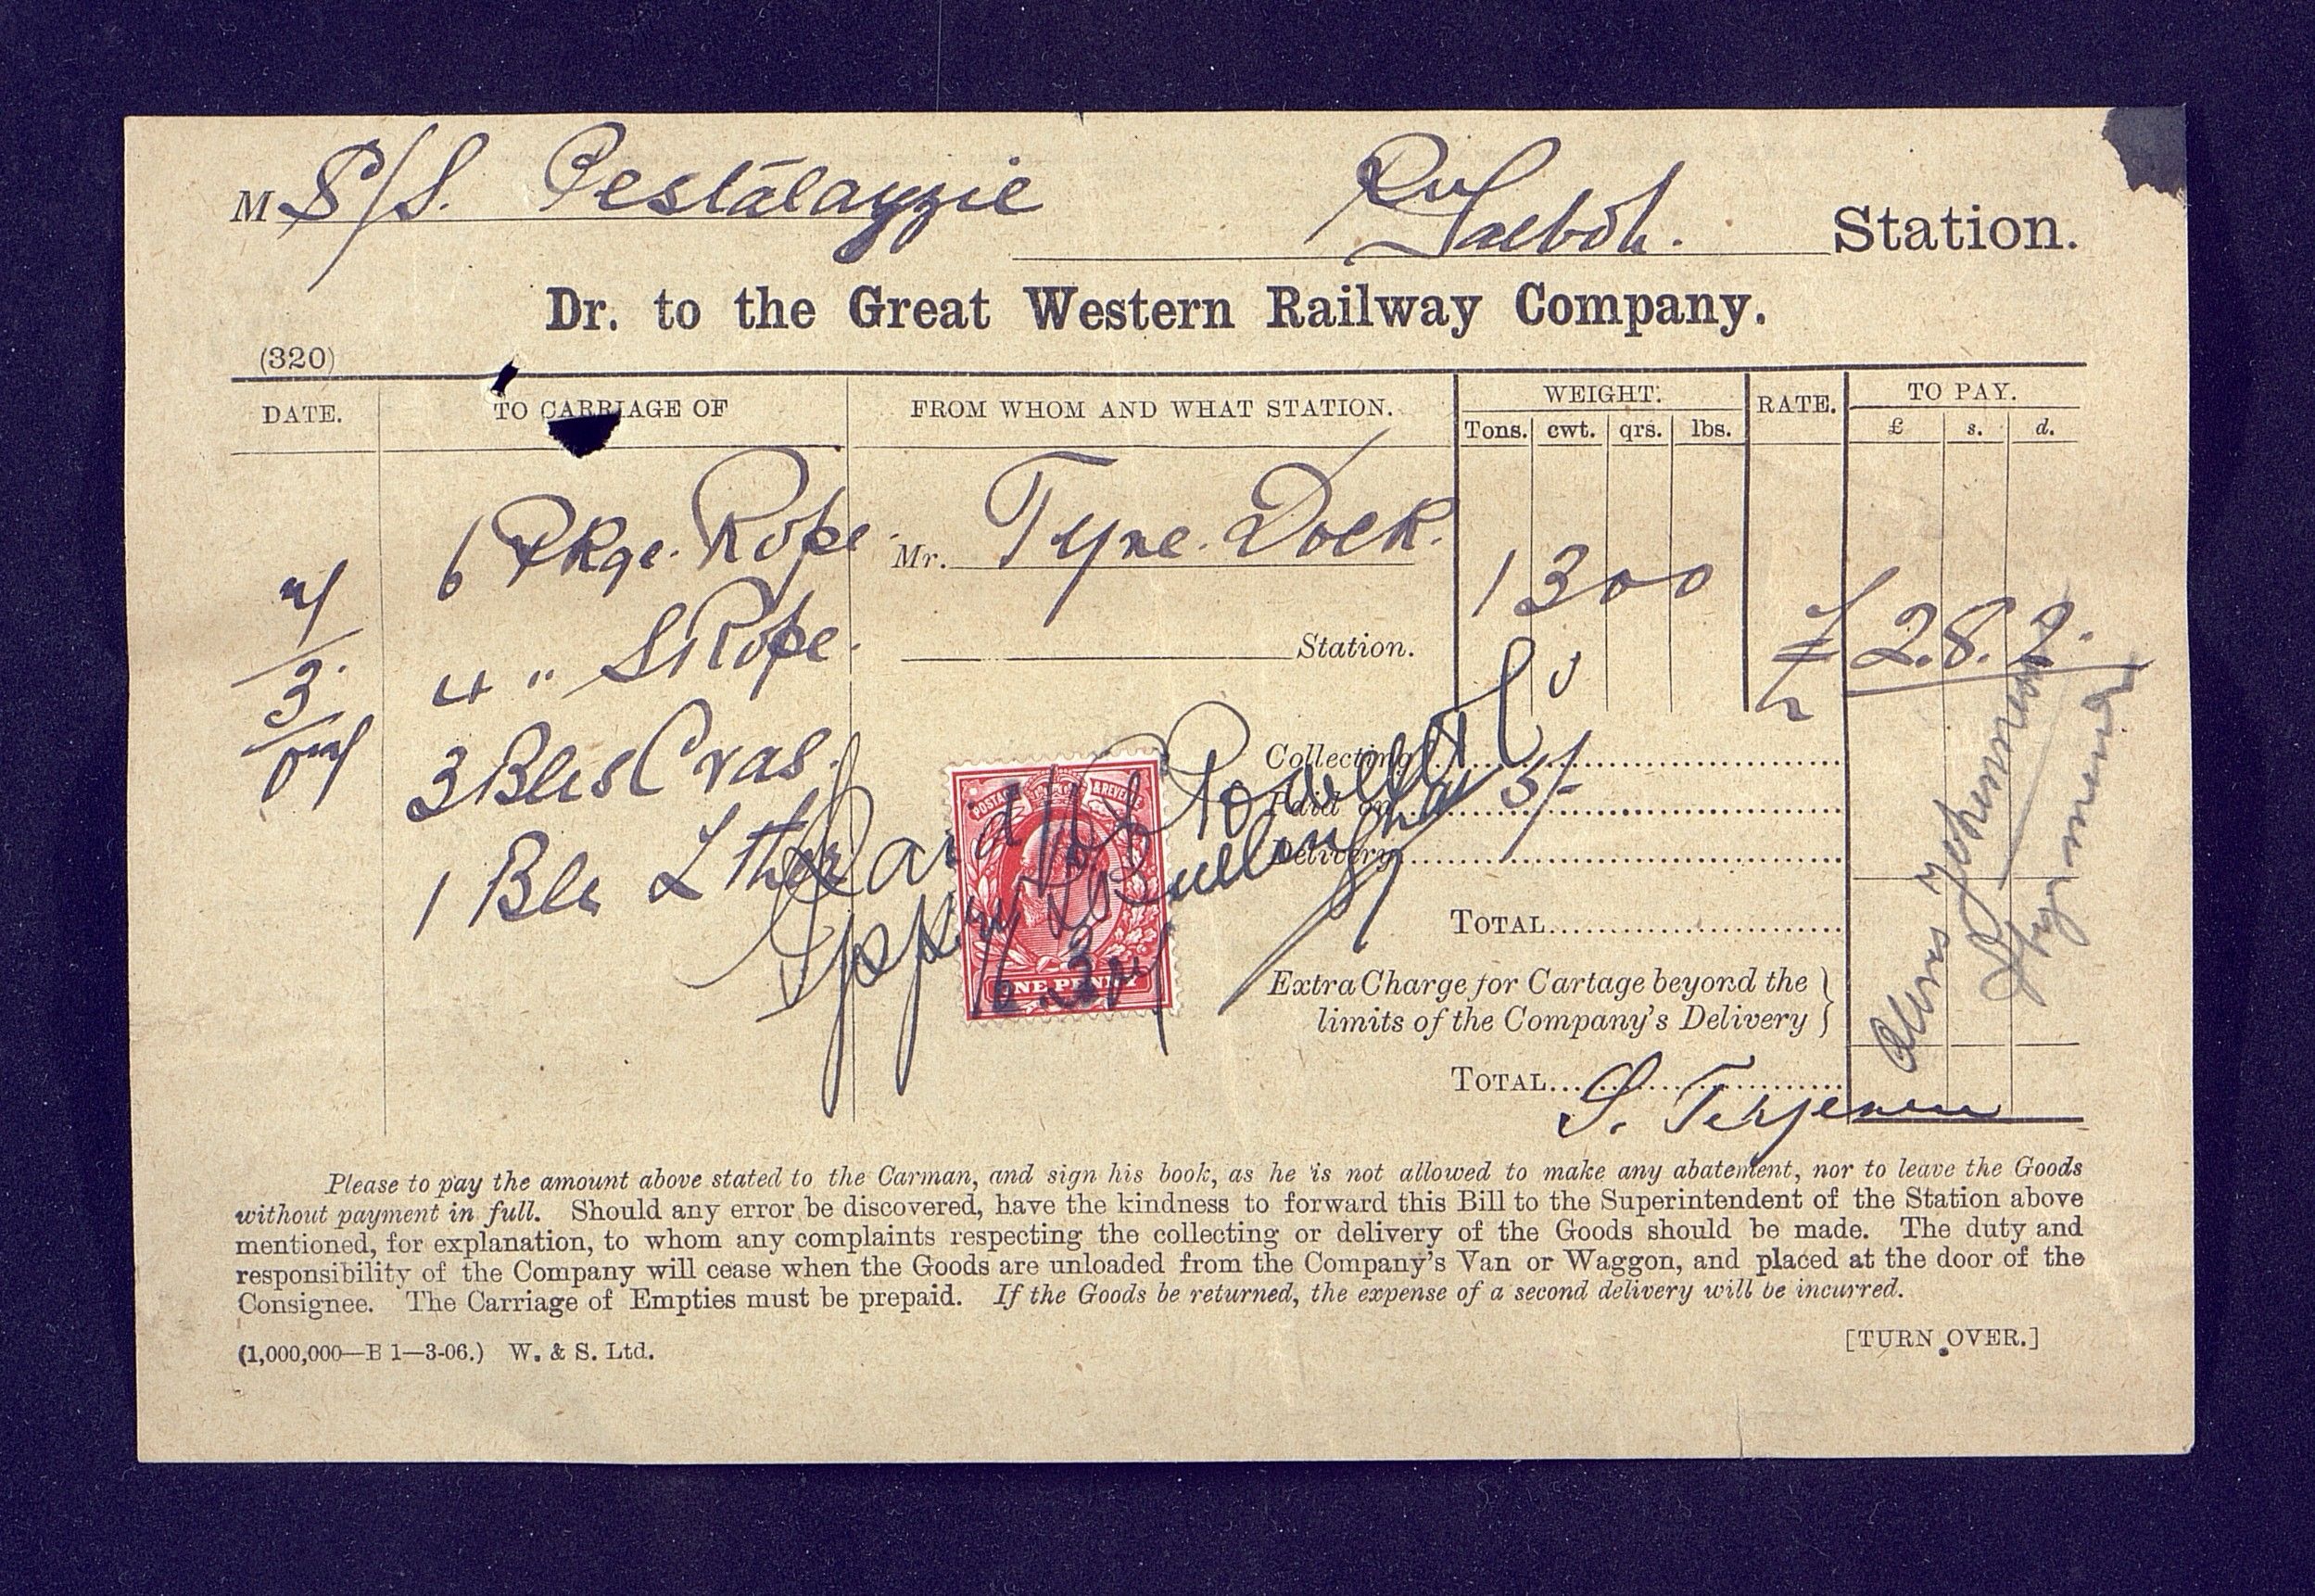 M S/S. Pestalayzie
Talboth. Station.
Dr. to the Great Western Railway Company.
(320)
DATE. TO CARRIAGE OF FROM WHOM AND WHAT STATION. WEIGHT. RATE. TO PAY.
Tons. cwt. qrs. lbs. £ s. d.
6 Pkge. Rope. Mr. Tyne. Dock.
1 3 0 0
4 " S Rope. Station. £ 2. 8. 2.
3
3 Bles Cvas. Collecting
Paid on 5/-
1 Ble Lther Delivery
Paid
POSTAGE & REVENUE
16.3
ONE PENNY
TOTAL
Extra Charge for Cartage beyond the
limits of the Company's Delivery }
TOTAL
S. Terjesen
Please to pay the amount above stated to the Carman, and sign his book, as he is not allowed to make any abatement, nor to leave the Goods
without payment in full. Should any error be discovered, have the kindness to forward this Bill to the Superintendent of the Station above
mentioned, for explanation, to whom any complaints respecting the collecting or delivery of the Goods should be made. The duty and
responsibility of the Company will cease when the Goods are unloaded from the Company's Van or Waggon, and placed at the door of the
Consignee. The Carriage of Empties must be prepaid. If the Goods be returned, the expense of a second delivery will be incurred.
(1,000,000—B 1—3-06.) W. & S. Ltd.
[TURN OVER.]